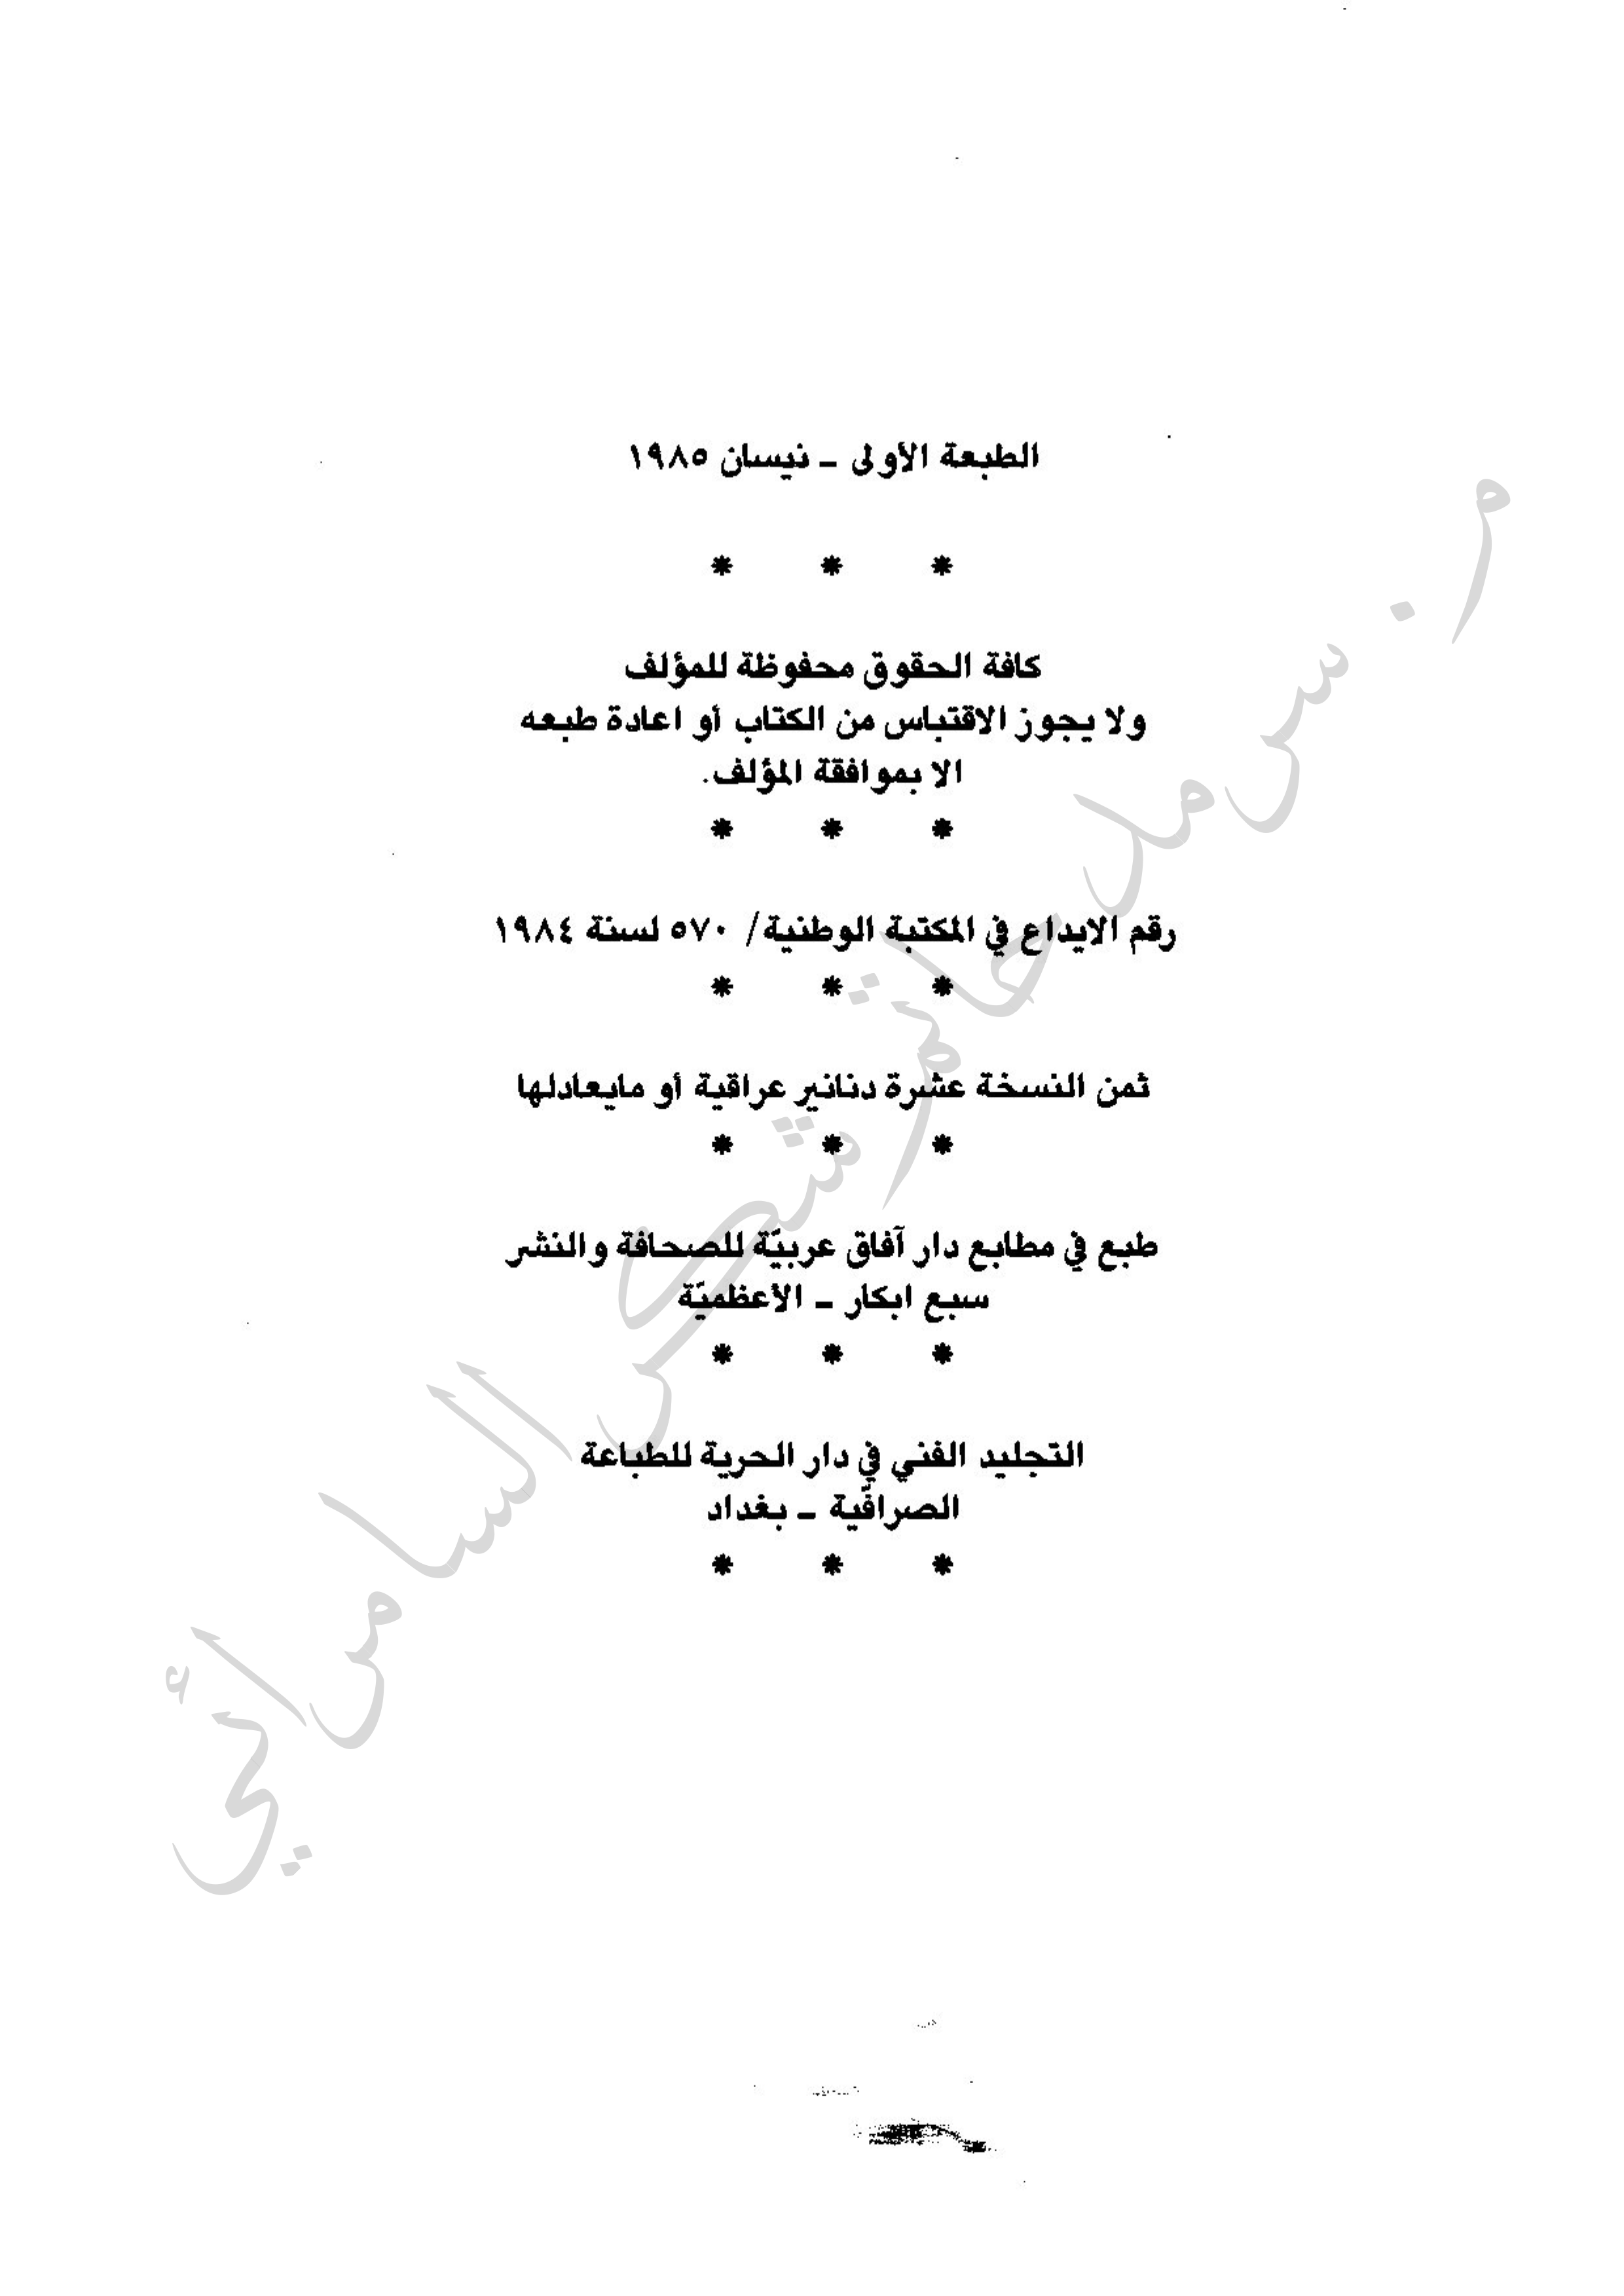 الطبعة الأولى ـ نيسان ١٩٨٥
* * *
كافة الحقوق محفوظة للمؤلف
ولا يجوز الاقتباس من الكتاب أو اعادة طبعه
الا بموافقة المؤلف.
* * *
رقم الايداع في المكتبة الوطنية/ ٥٧٠ لسنة ١٩٨٤
* * *
ثمن النسخة عشرة دنانير عراقية أو مايعادلها
* * *
طبع في مطابع دار آفاق عربيّة للصحافة والنشر
سبع ابكار ـ الأعظميّة
* * *
التجليد الفني في دار الحرية للطباعة
الصرافّية ـ بغداد
* * *
م. سرمد حاتم شكر السامرائي